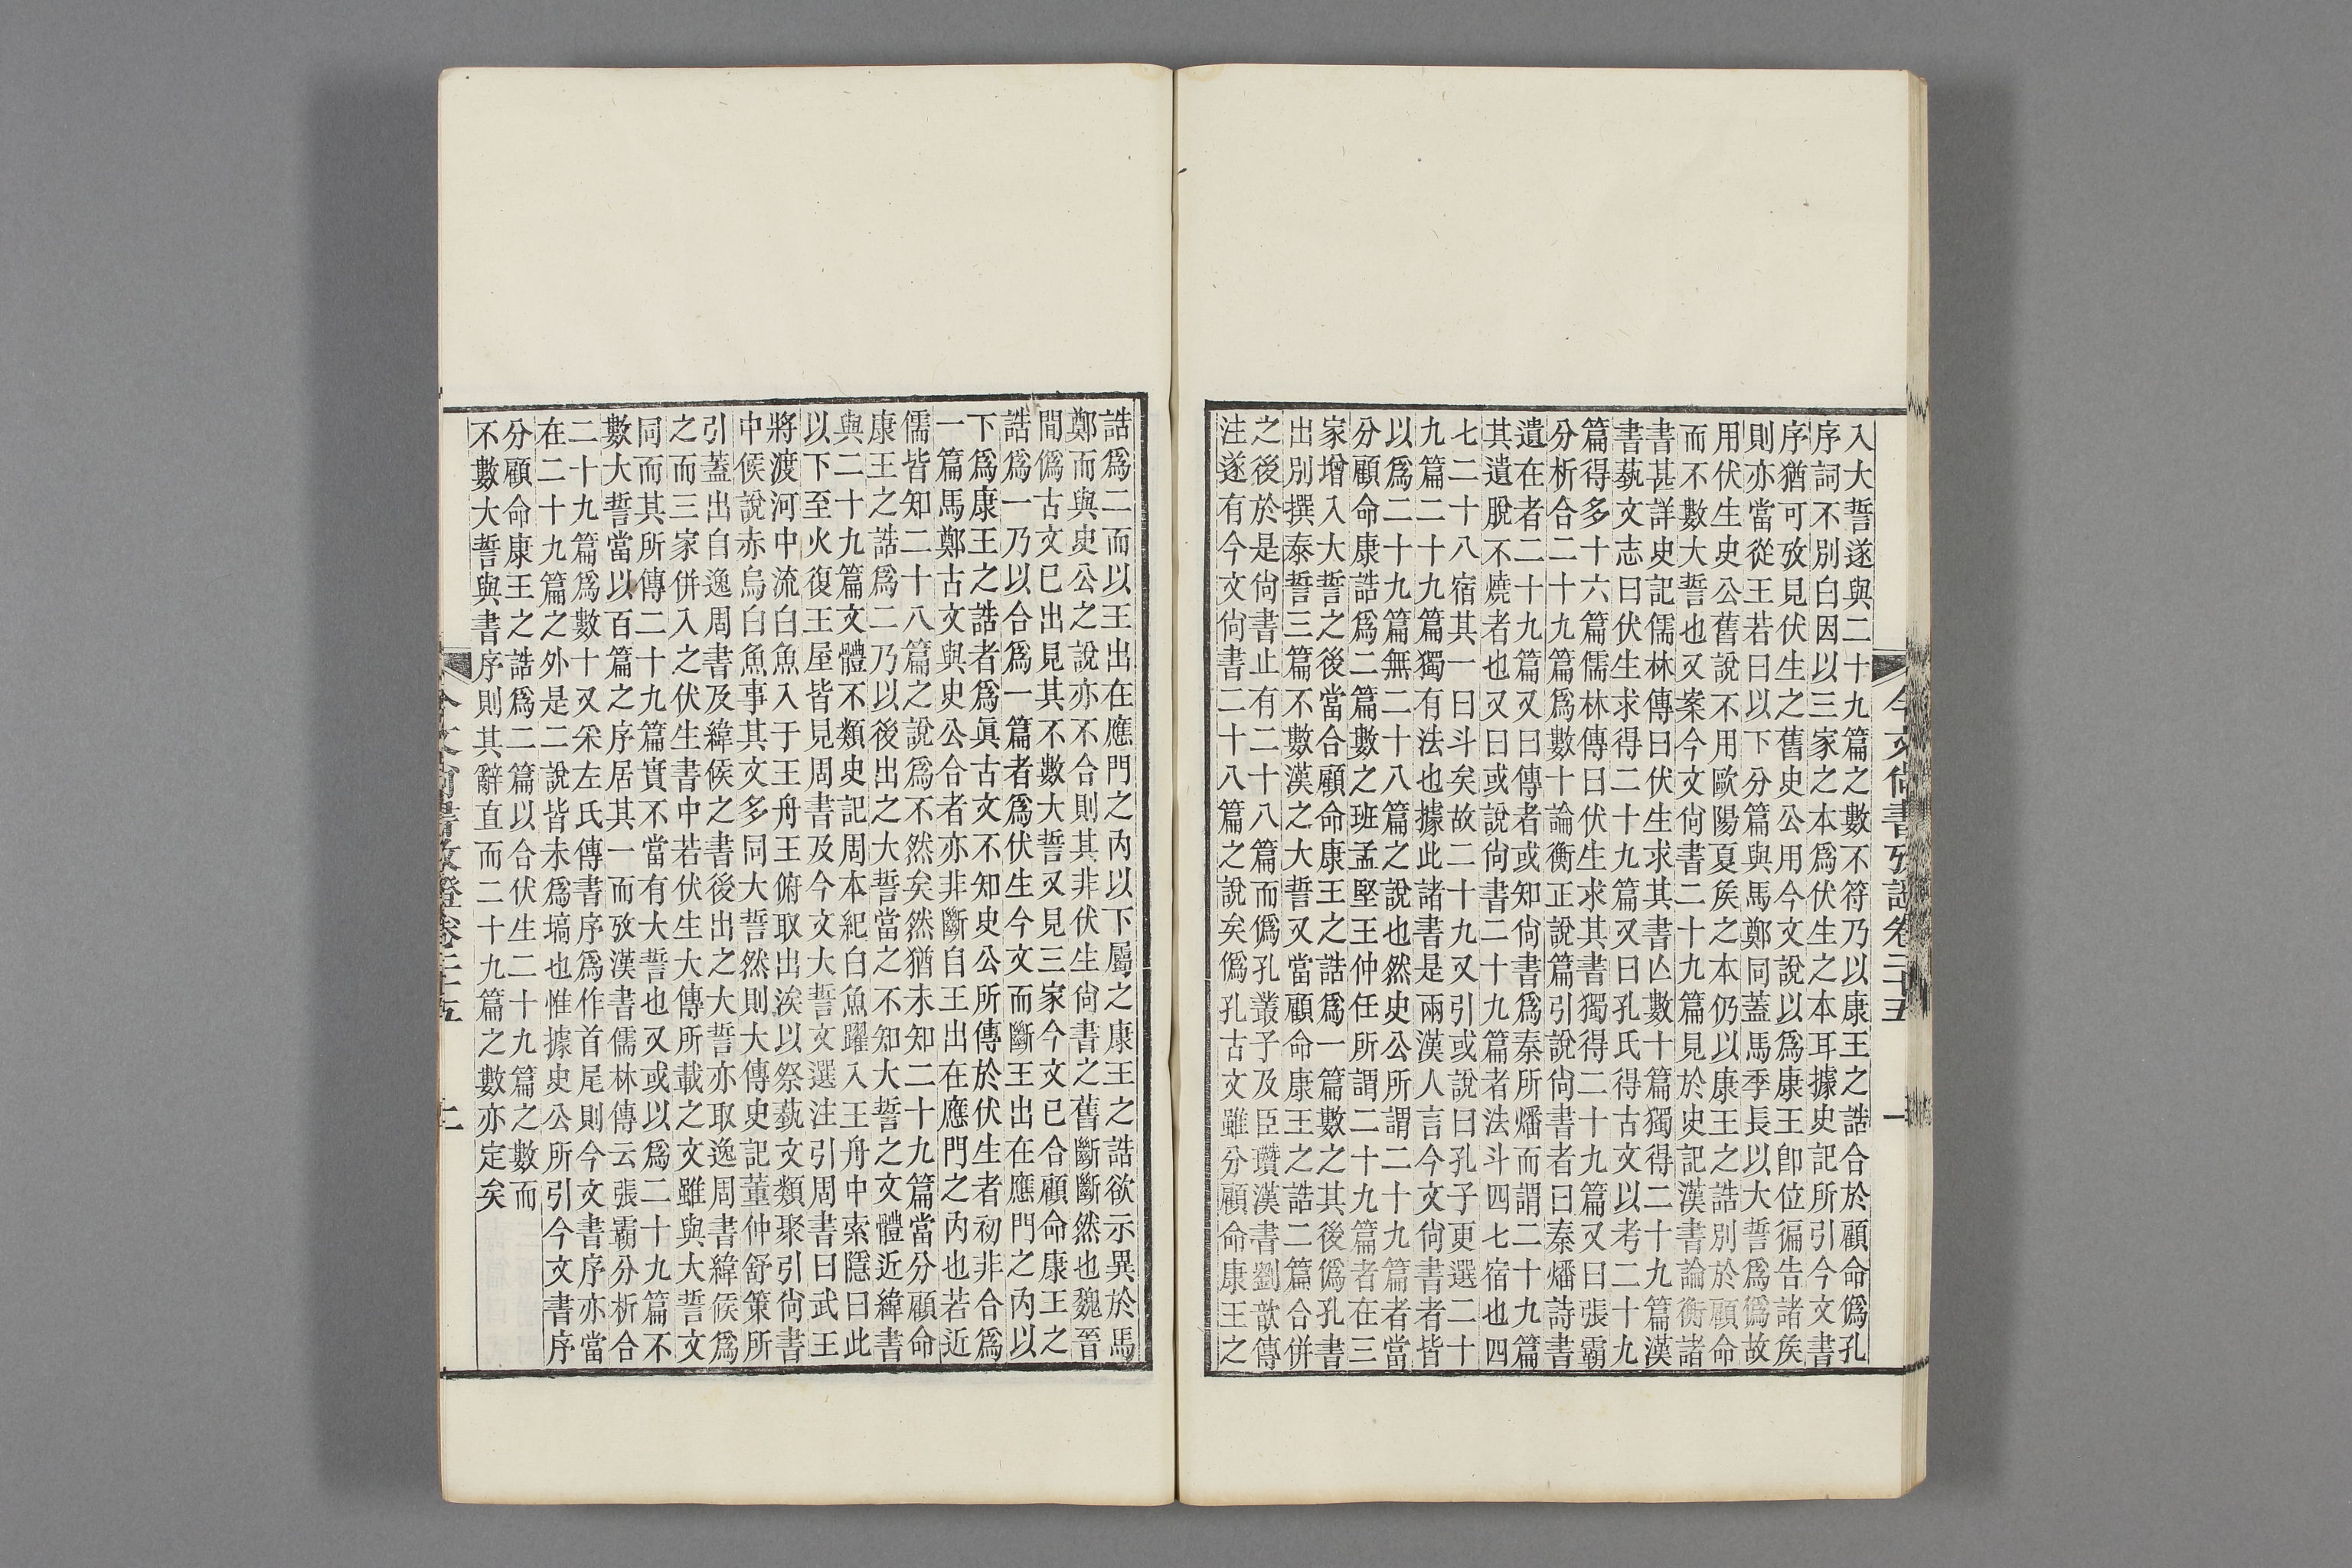 今文尚書攷證卷二十五 一
入大誓遂與二十九篇之數不符乃以康王之誥合於顧命僞孔
序詞不別白因以三家之本爲伏生之本耳據史記所引今文書
序猶可攷見伏生之舊史公用今文說以爲康王卽位徧告諸矦
則亦當從王若曰以下分篇與馬鄭同蓋馬季長以大誓爲僞故
用伏生史公舊說不用歐陽夏矦之本仍以康王之誥別於顧命
而不數大誓也又案今文尙書二十九篇見於史記漢書論衡諸
書甚詳史記儒林傳曰伏生求其書亡數十篇獨得二十九篇漢
書蓺文志曰伏生求得二十九篇又曰孔氏得古文以考二十九
篇得多十六篇儒林傳曰伏生求其書獨得二十九篇又曰張霸
分析合二十九篇爲數十論衡正說篇引說尙書者曰秦燔詩書
遺在者二十九篇又曰傳者或知尙書爲秦所燔而謂二十九篇
其遺脫不燒者也又曰或說尙書二十九篇者法斗四七宿也四
七二十八宿其一曰斗矣故二十九又引或說曰孔子更選二十
九篇二十九篇獨有法也據此諸書是兩漢人言今文尙書者皆
以爲二十九篇無二十八篇之說也然史公所謂二十九篇者當
分顧命康誥爲二篇數之班孟堅王仲任所謂二十九篇者在三
家增入大誓之後當合顧命康王之誥爲一篇數之其後僞孔書
出別撰泰誓三篇不數漢之大誓又當顧命康王之誥二篇合併
之後於是尙書止有二十八篇而僞孔叢子及臣瓚漢書劉歆傳
注遂有今文尙書二十八篇之說矣僞孔古文雖分顧命康王之
誥爲二而以王出在應門之內以下屬之康王之誥欲示異於馬
鄭而與史公之說亦不合則其非伏生尙書之舊斷斷然也魏晉
間僞古文已出見其不數大誓又見三家今文已合顧命康王之
誥爲一乃以合爲一篇者爲伏生今文而斷王出在應門之內以
下爲康王之誥者爲眞古文不知史公所傳於伏生者初非合爲
一篇馬鄭古文與史公合者亦非斷自王出在應門之內也若近
儒皆知二十八篇之說爲不然矣然猶未知二十九篇當分顧命
康王之誥爲二乃以後出之大誓當之不知大誓之文體近緯書
與二十九篇文體不類史記周本紀白魚躍入王舟中索隱曰此
以下至火復王屋皆見周書及今文大誓文選注引周書曰武王
將渡河中流白魚入于王舟王俯取出涘以祭蓺文類聚引尙書
中候說赤烏白魚事其文多同大誓然則大傳史記董仲舒策所
引蓋出自逸周書及緯候之書後出之大誓亦取逸周書緯候爲
之而三家併入之伏生書中若伏生大傳所載之文雖與大誓文
同而其所傳二十九篇實不當有大誓也又或以爲二十九篇不
數大誓當以百篇之序居其一而攷漢書儒林傳云張霸分析合
二十九篇爲數十又采左氏傳書序爲作首尾則今文書序亦當
在二十九篇之外是二說皆未爲塙也惟據史公所引今文書序
分顧命康王之誥爲二篇以合伏生二十九篇之數而
不數大誓與書序則其辭直而二十九篇之數亦定矣
今文尚書攷證卷二十五